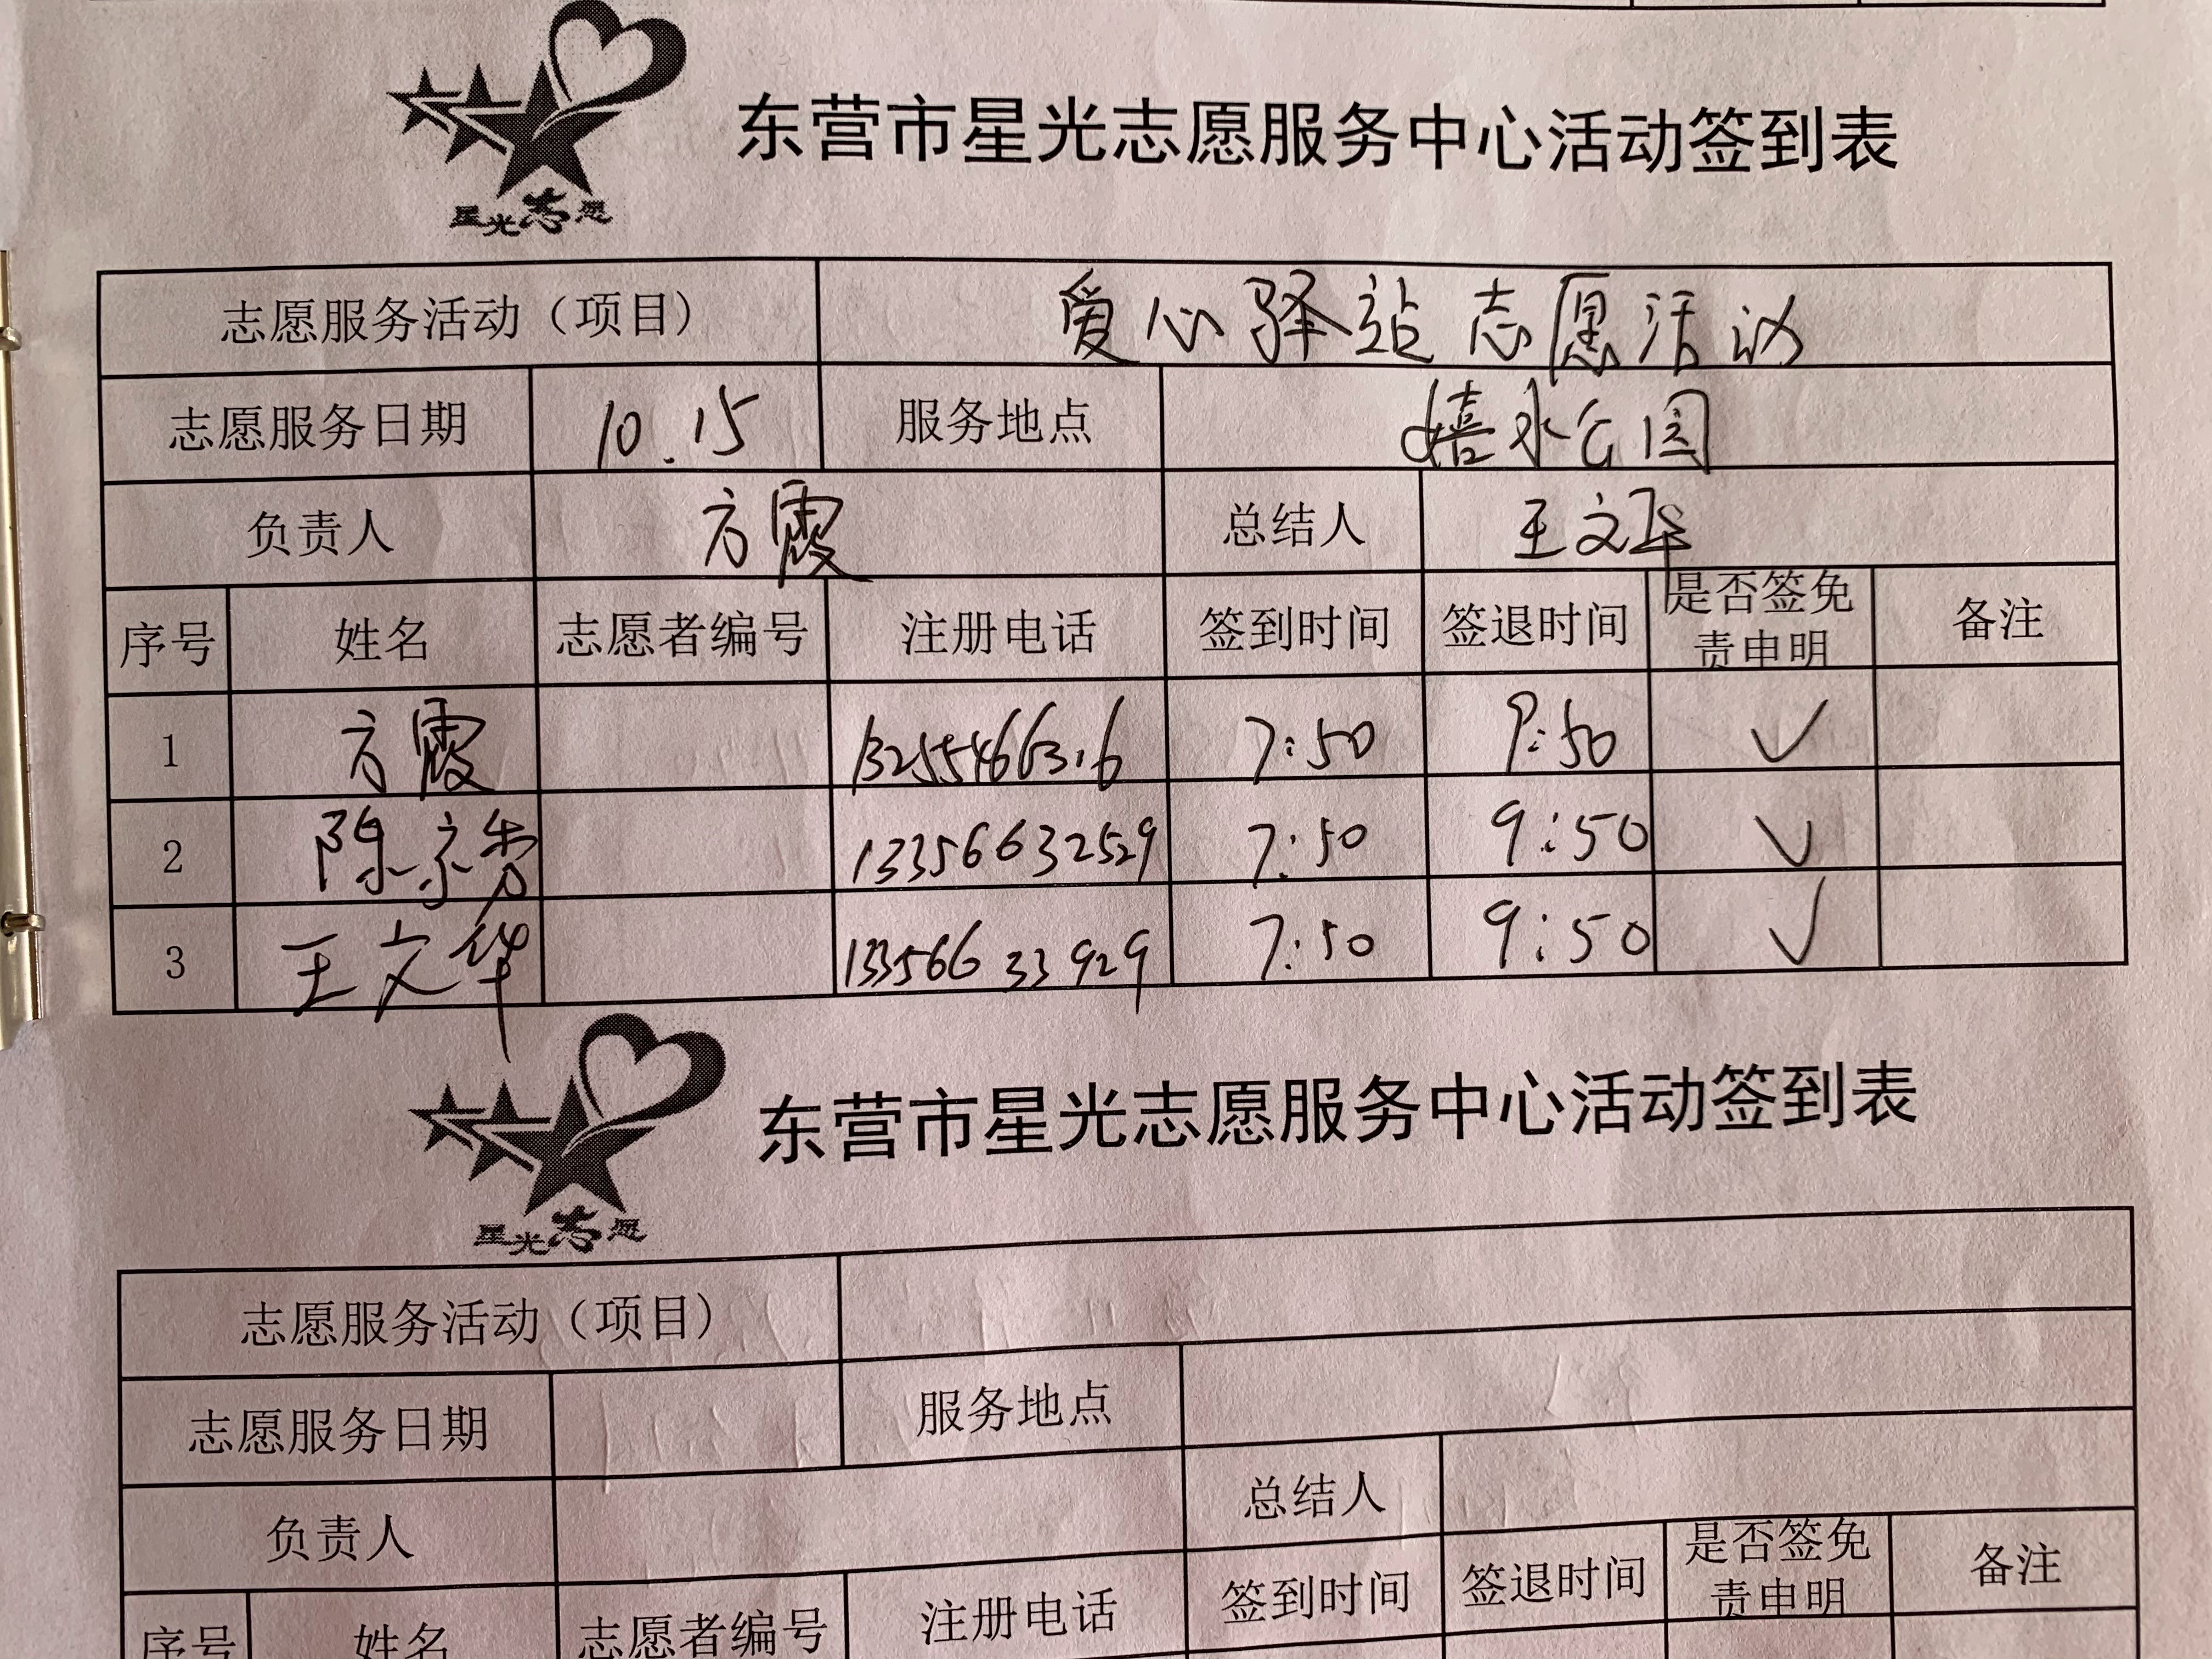 东营市星光志愿服务中心活动签到表
星光志愿
志愿服务活动（项目） 爱心驿站志愿活动
志愿服务日期 10.15 服务地点 嬉水公园
负责人 方霞 总结人 王文华
序号 姓名 志愿者编号 注册电话 签到时间 签退时间 是否签免责申明 备注
1 方霞 13255466316 7:50 9:50 ✓
2 陈京秀 13356632529 7:50 9:50 ✓
3 王文华 13356633929 7:50 9:50 ✓
东营市星光志愿服务中心活动签到表
星光志愿
志愿服务活动（项目）
志愿服务日期 服务地点
负责人 总结人
序号 姓名 志愿者编号 注册电话 签到时间 签退时间 是否签免责申明 备注